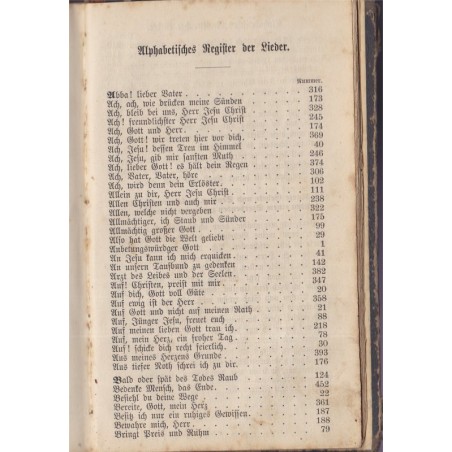 Alphabetisches Register der Lieder.
Nummer.
Abba! lieber Vater 316
Ach, ach, wie drücken meine Sünden 173
Ach, bleib bei uns, Herr Jesu Christ 328
Ach! freundlichster Herr Jesu Christ 245
Ach, Gott und Herr 174
Ach, Gott! wir treten hier vor dich 369
Ach, Jesu! dessen Treu im Himmel 40
Ach, Jesu, gib mir sanften Muth 246
Ach, lieber Gott! es hält dein Regen 374
Ach, Vater, Vater, höre 306
Ach, wird denn dein Erlöster 102
Allein zu dir, Herr Jesu Christ 111
Allen Christen und auch mir 238
Allen, welche nicht vergeben 322
Allmächtiger, ich Staub und Sünder 175
Allmächtig großer Gott 99
Also hat Gott die Welt geliebt 29
Anbetungswürdger Gott 1
An Jesu kann ich mich erquicken 41
An unsern Taufbund zu gedenken 142
Arzt des Leibes und der Seelen 382
Auf! Christen, preist mit mir 347
Auf dich, Gott voll Güte 20
Auf ewig ist der Herr 358
Auf Gott und nicht auf meinen Rath 21
Auf, Jünger Jesu, freuet euch 88
Auf meinen lieben Gott trau ich 218
Auf, mein Herz, ein froher Tag 78
Auf! schicke dich recht feierlich 30
Aus meines Herzens Grunde 393
Aus tiefer Noth schrei ich zu dir 176
Bald oder spät des Todes Raub 124
Bedenke Mensch, das Ende 452
Befiehl du deine Wege 22
Bereite, Gott, mein Herz 361
Besitz ich nur ein ruhiges Gewissen 187
Bewahre mich, Herr 188
Bringt Preis und Ruhm 79